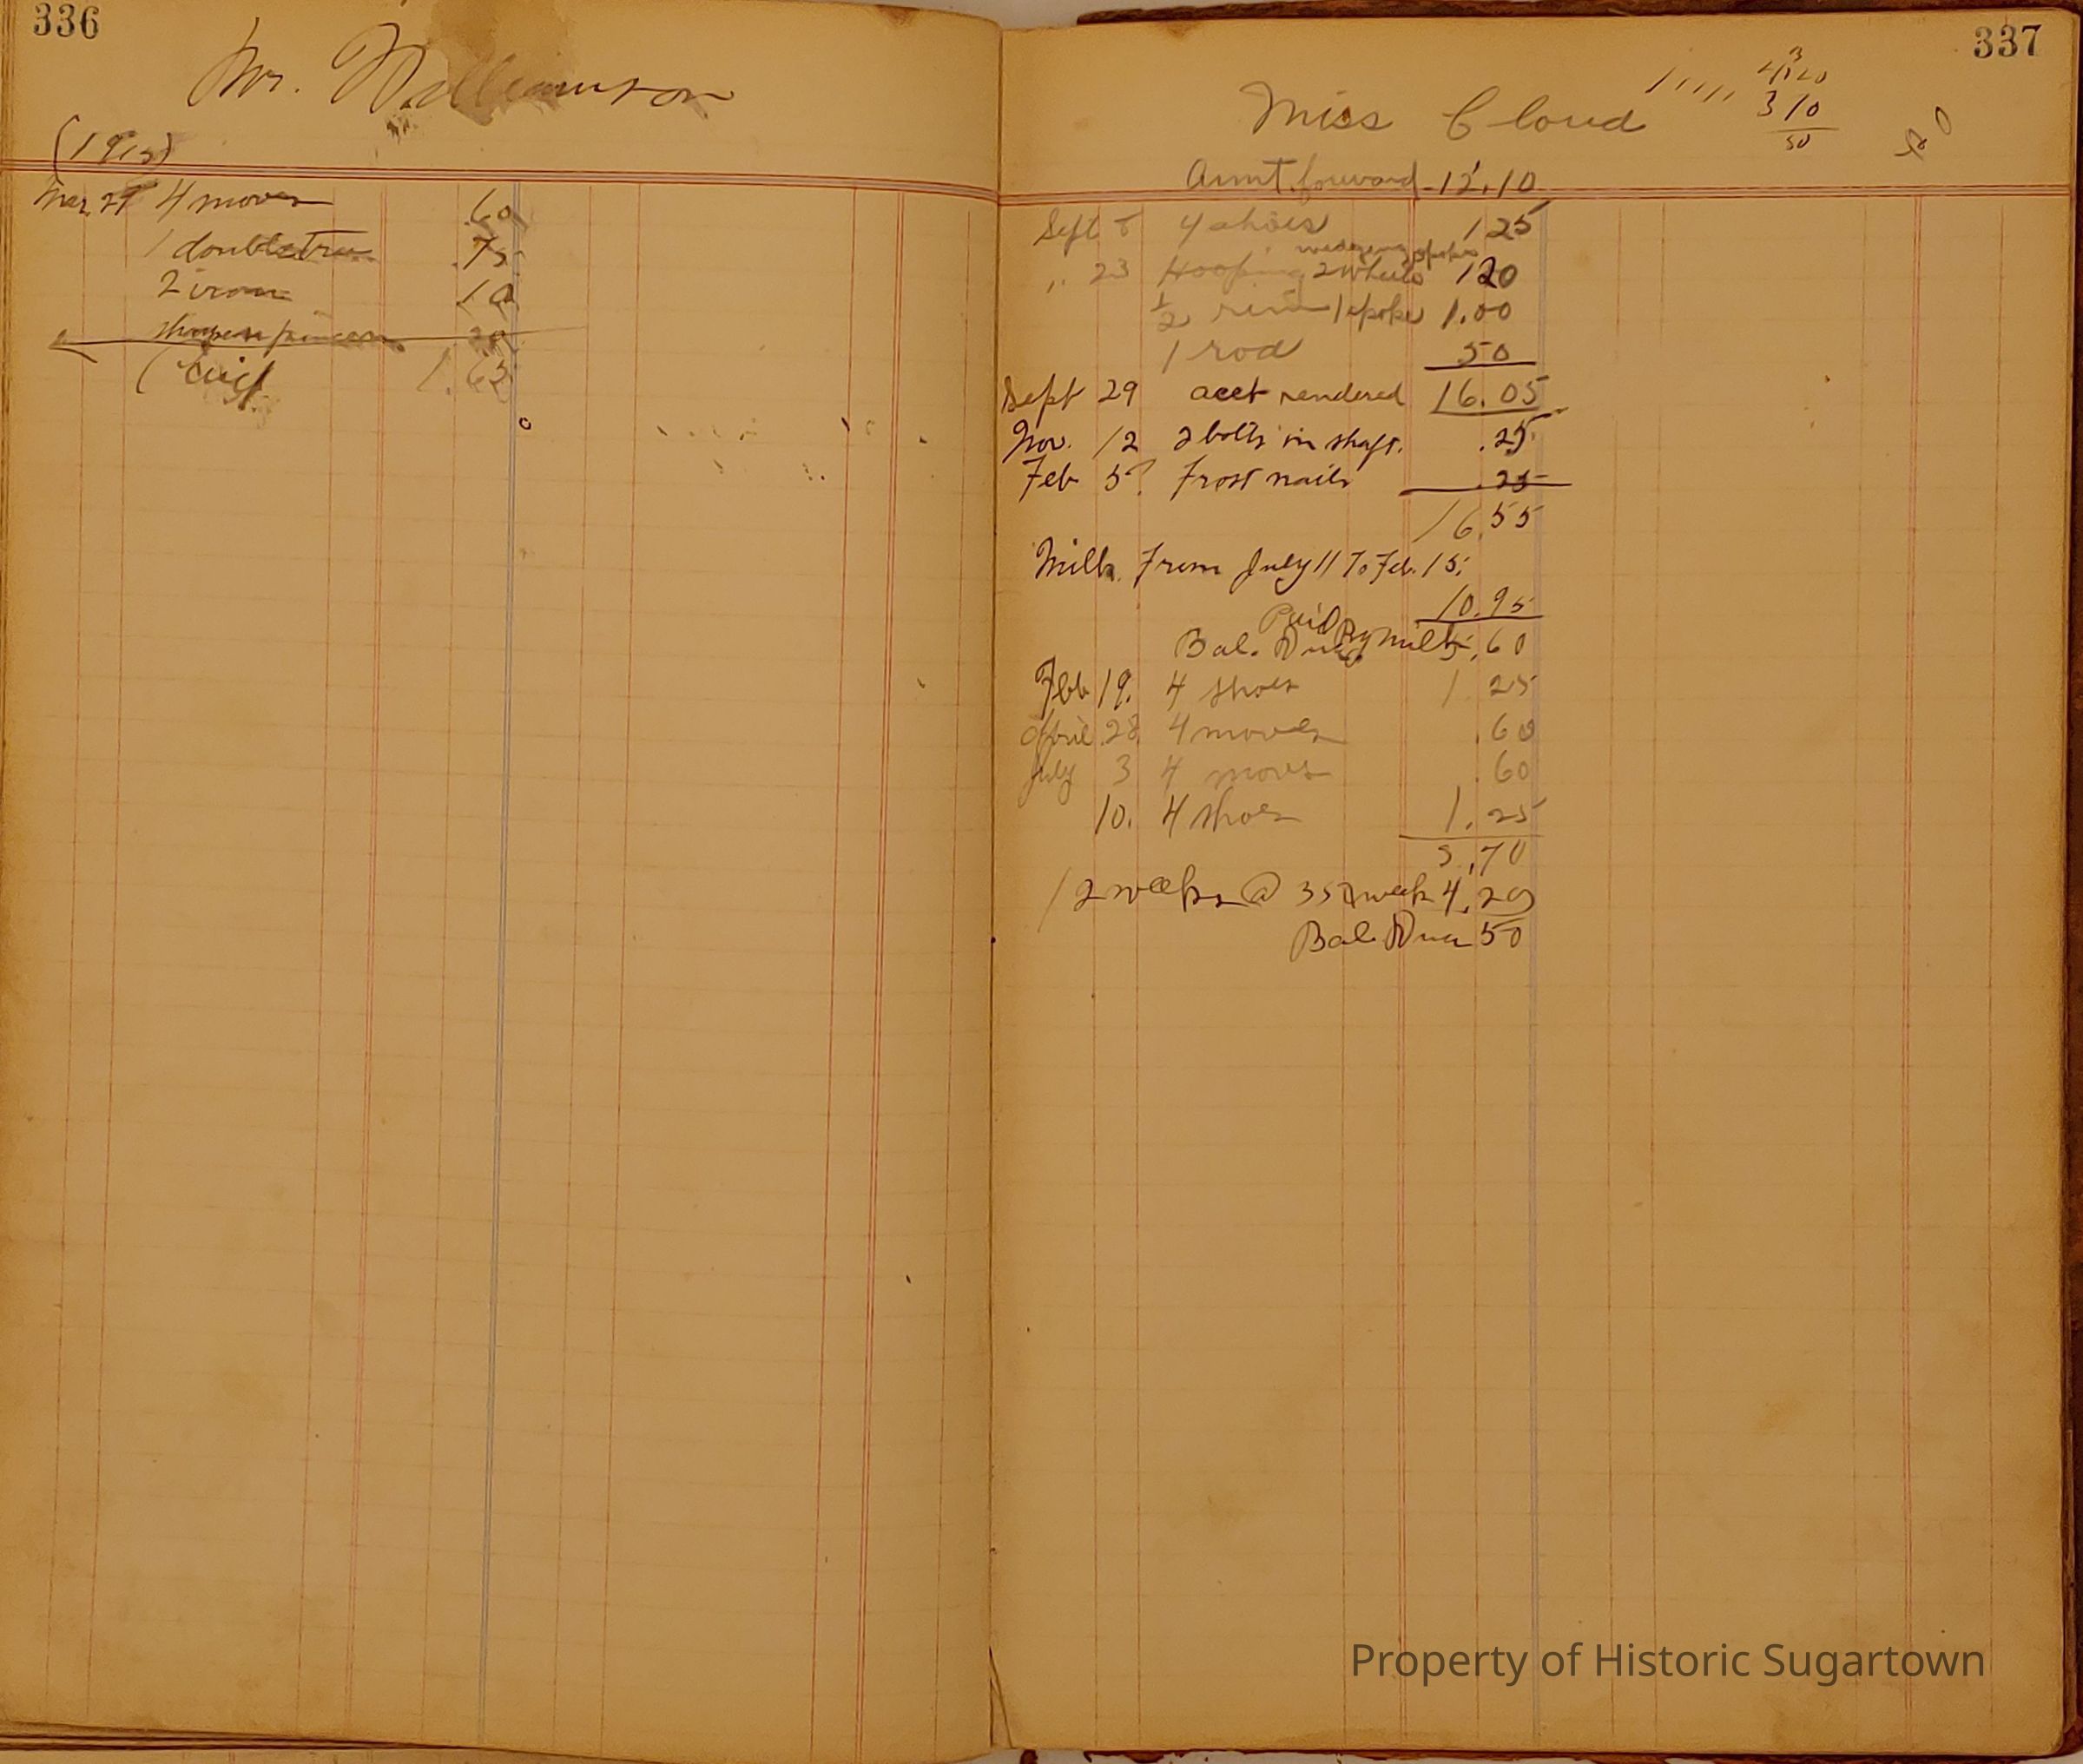 336
Mr. Williamson
(1915)
Mar. 29 4 moves .60
1 doubletree .75
2 irons .10
sharpen 20
1.65
337
Miss Cloud
3
4.20
3 70
50
Amt. forward 12.10
Sept 5 4 shoes 1 25
wedging spokes
,, 23 Hooping 2 wheels 1 20
1/2 rim 1 spoke 1.00
1 rod 50
Sept 29 acct rendered 16.05
Nov. 12 2 bolts in shaft. .25
Feb 5 Frost nails .25
16.55
Milk From July 11 To Feb. 15.
10.95
Paid By milk
Bal. Due 5.60
Feb 19. 4 shoes 1.25
April 28. 4 moves .60
July 3 4 moves .60
10. 4 shoes 1.25
3.70
12 weeks @ 35 week 4.20
Bal. Due 50
Property of Historic Sugartown